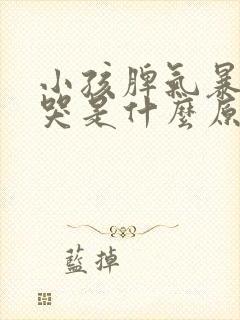 小孩脾氣暴
哭是什麼原
藍掉